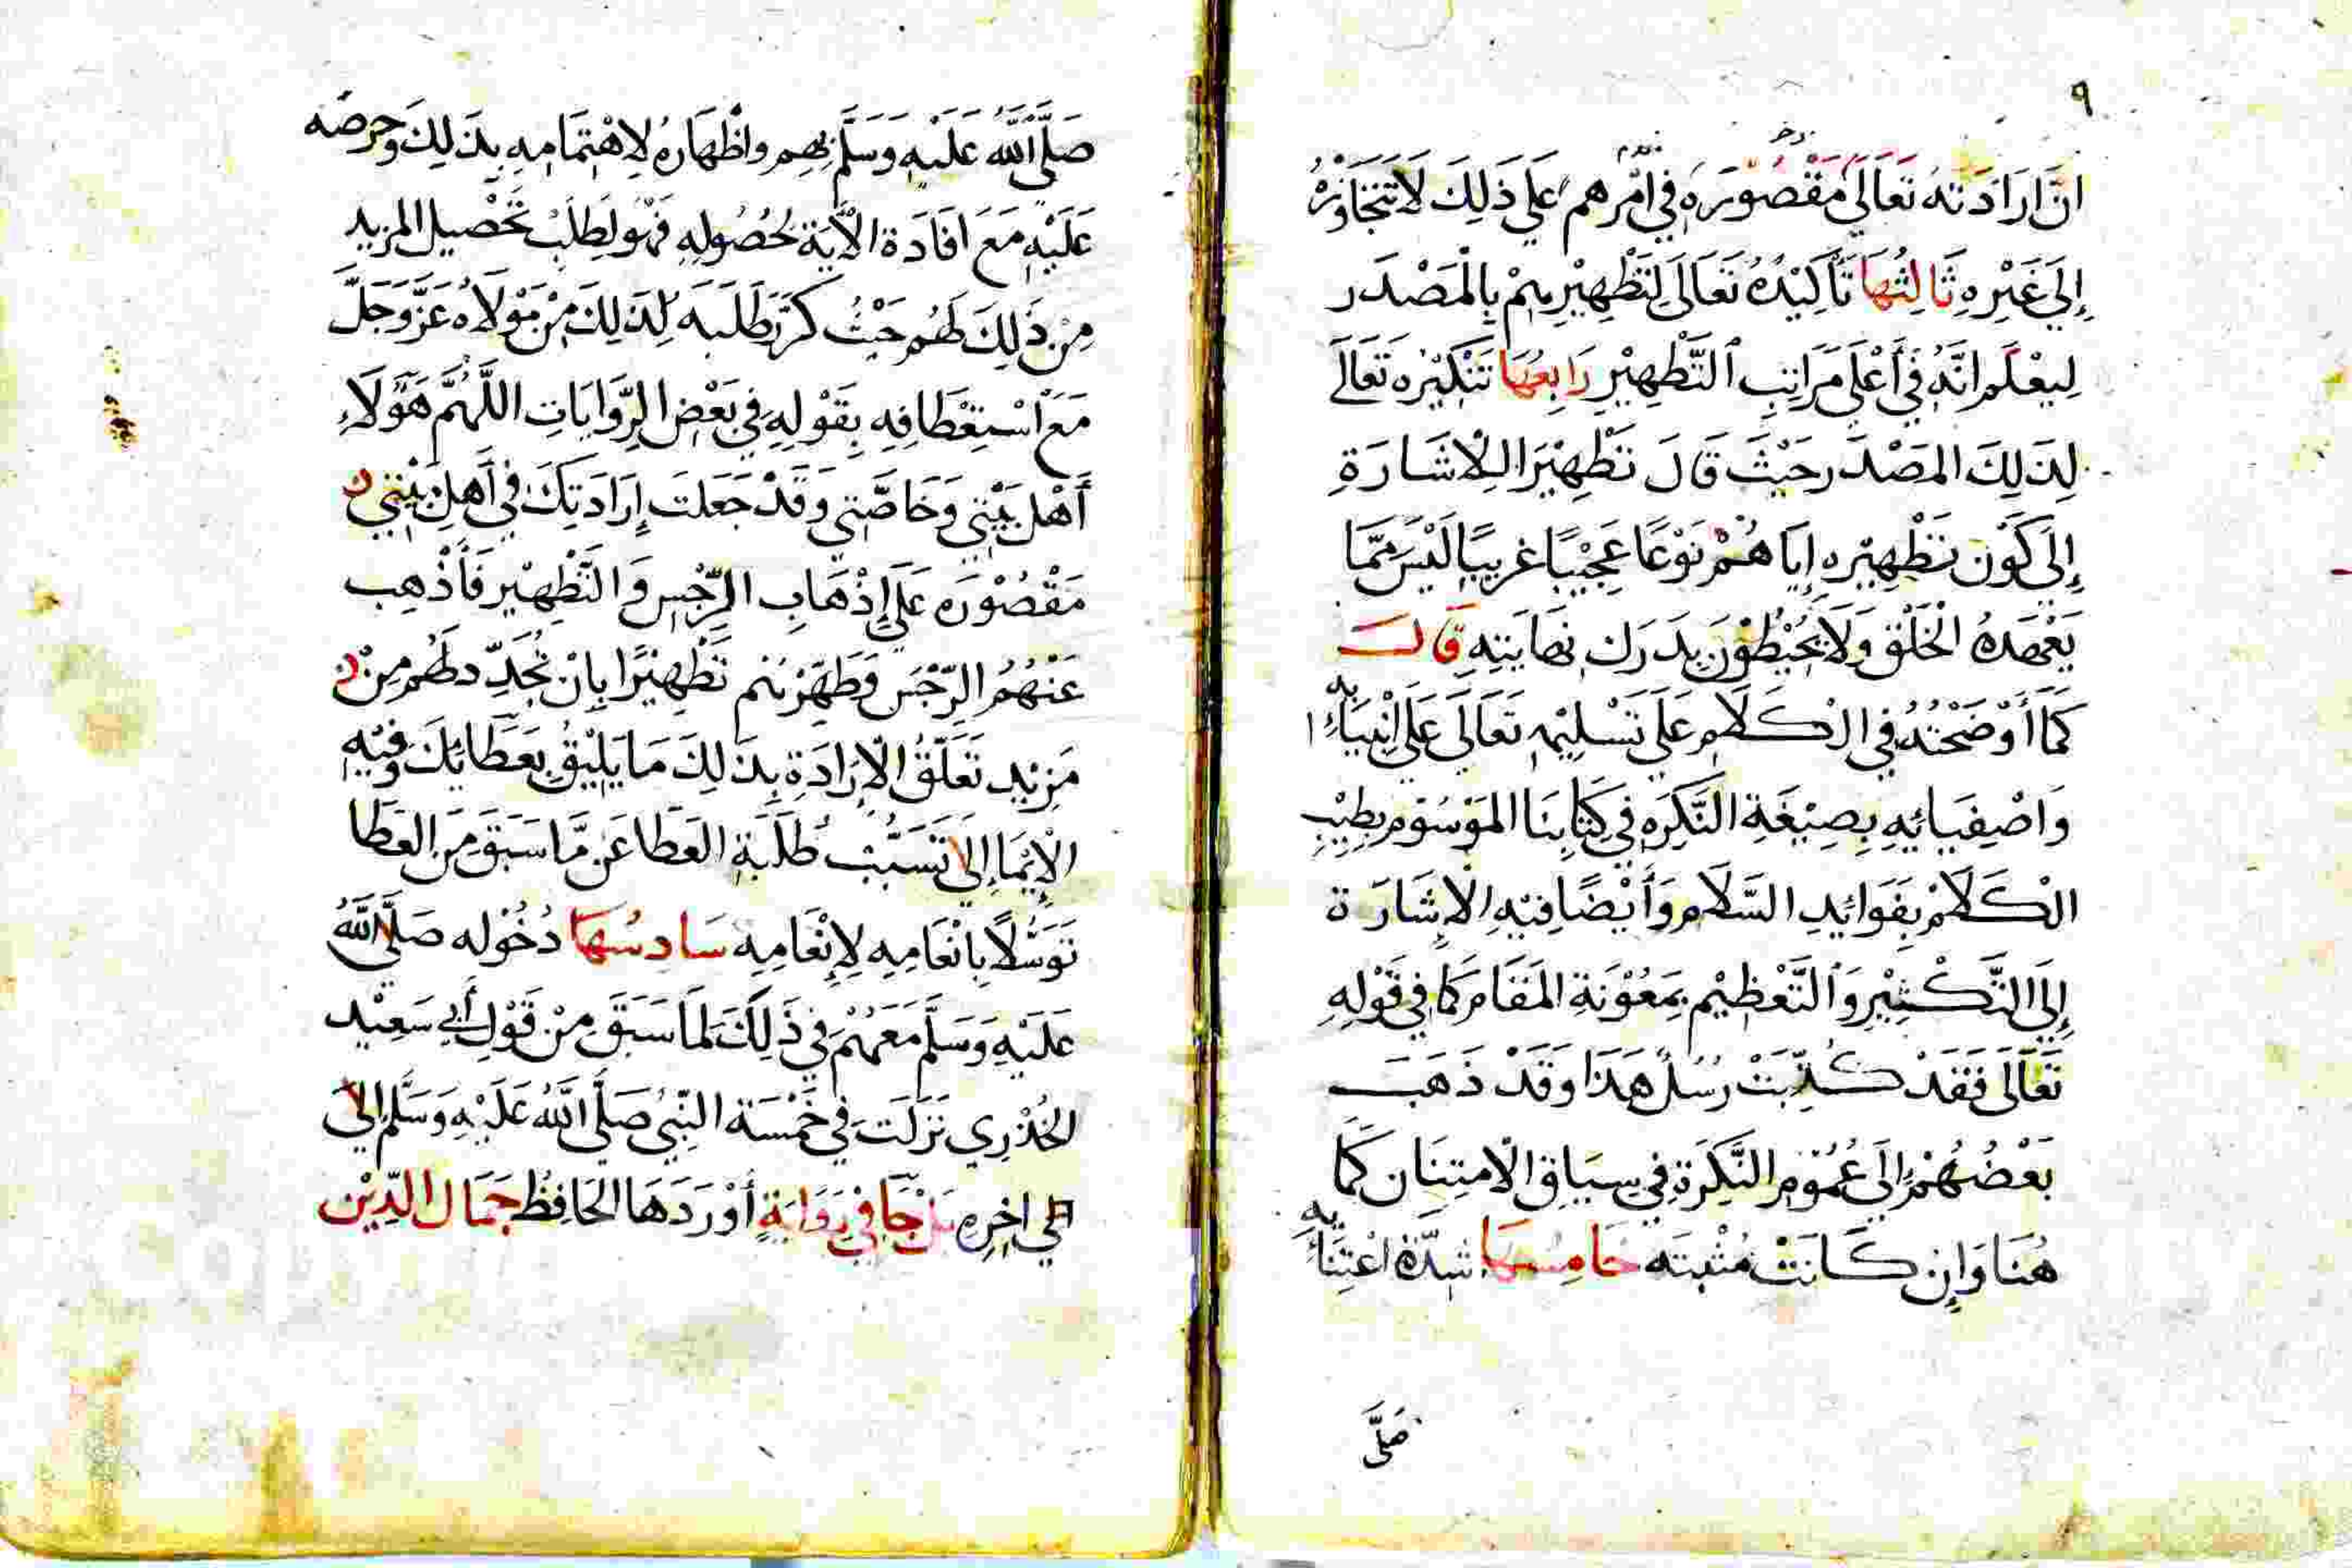 ٩
انَّ ارَادَتهُ تَعَالَى مَقْصُورَهُ فِي امْرِهم عَلَى ذَلِكَ لَا تَتَجَاوَزهُ
إِلَى غَيْرِهِ ثَالِثُهَا تَأْكِيْدُهُ تَعَالَى لِتَطْهِيْرِهِمْ بِالْمَصْدَر
لِيعْلَم انَّهُ فِي أَعْلَى مَرَاتِبِ التَّطْهِيْرِ رَابِعُهَا تَنْكِيْرُه تَعَالَى
لِذَلِكَ المَصْدَر حَيْثَ قَالَ تَطْهِيْرَا لِلْاشَارَةِ
إِلَى كَوْن تَطْهِيْرِه إِيَاهُمْ نَوْعًا عَجِيْبًا غرِيبًا لَيْسَ مِمَّا
يَعْهَدهُ الْخَلْق وَلَا يُحِيْطُوْنَ بِدَرَك نِهايَتِهِ قَالَ
كَمَا أَوْضَحْتُهُ فِي الْكَلَامِ عَلَى تَسْلِيْمِه تَعَالَى عَلَى انْبِيَائِه
وَاصْفِيَائِهِ بِصِيْغَةِ النَّكِرَه فِي كتَابِنَا المَوْسُوْم بطِيْبِ
الْكَلَامْ بِفَوَائِدِ السَّلَام وَأَيْضًا فِيْهِ الْإِشَارَة
إِلَى التَّكْثِيْرِ وَالتَّعْظِيْم بِمَعُوْنَةِ المَقَام كَمَا فِي قَوْلِهِ
تَعَالَى فَقَدْ كُذِّبَتْ رُسُلٌ هَذَا وَقَدْ ذَهَبَ
بَعْضُهُمْ إِلَى عُمُوْمِ النَّكِرَةِ فِي سِيَاقِ الْامتِنَان كَمَا
هُنَا وَإِن كَانَتْ مُثْبتَه خَامِسُهَا شِدَّةُ اعْتِنَائِه
صَلَّى
صَلَّى اللَّهُ عَلَيْهِ وَسَلَّمَ بِهِم واظْهَارهُ لِاهْتِمَامِهِ بِذَلِكَ وَحِرْصه
عَلَيْهِ مَعَ افَادَة الْآيَة لِحُصُولِهِ فَهُوَ لِطَلَبْ تَحْصِيل المزِيدِ
مِنْ ذَلِكَ لَهُم حَيْثُ كَرَّرَ طَلَبَهُ لِذَلِكَ مِنْ مَوْلَاهُ عَزَّ وَجَلَّ
مَعَ اسْتِعْطَافِه بِقَوْلِهِ فِي بَعْضِ الرِّوَايَاتِ اللَّهُمَّ هَؤُلَاءِ
أَهْل بَيْتِي وَخَاصَّتِي وَقَدْ جَعَلت إِرَادَتِكَ فِي أَهلِ بَيْتِي
مَقْصُوْرَه عَلَى إِذْهَابِ الرِّجْسِ وَالتَّطْهِيْر فَأَذْهِب
عَنْهُمُ الرِّجْسَ وَطَهِّرْهُم تَطْهِيْرًا بِانْ تُجَدِّد لَهُم مِنْ
مَزِيْدِ تَعَلّقُ الْإِرَادَةِ بِذَلِكَ مَا يَلِيْقُ بِعَطَائِكَ وَفِيْهِ
الْإِيْمَا إِلَى تَسَبُّبْ طَلَبَة العَطَا عَن مَّا سَبَقَ مِنَ العَطَا
تَوَسُّلًا بِانْعَامِهِ لِإِنْعَامِهِ سَادِسُهَا دُخُوْله صَلَّى اللَّهُ
عَلَيْهِ وَسَلَّمَ مَعَهُمْ فِي ذَلِكَ لمَا سَبَقَ مِنْ قَوْلِ أَبِي سَعِيْد
الخُدْرِي نَزَلَت فِي خَمْسَة النَّبِيُ صَلَّى اللَّهُ عَلَيْهِ وَسَلَّم إلى
إلي اخِرِهِ بَلْ جَا فِي رِوَايَةٍ أَوْرَدَهَا الحَافِظُ جَمَال الدِّيْن